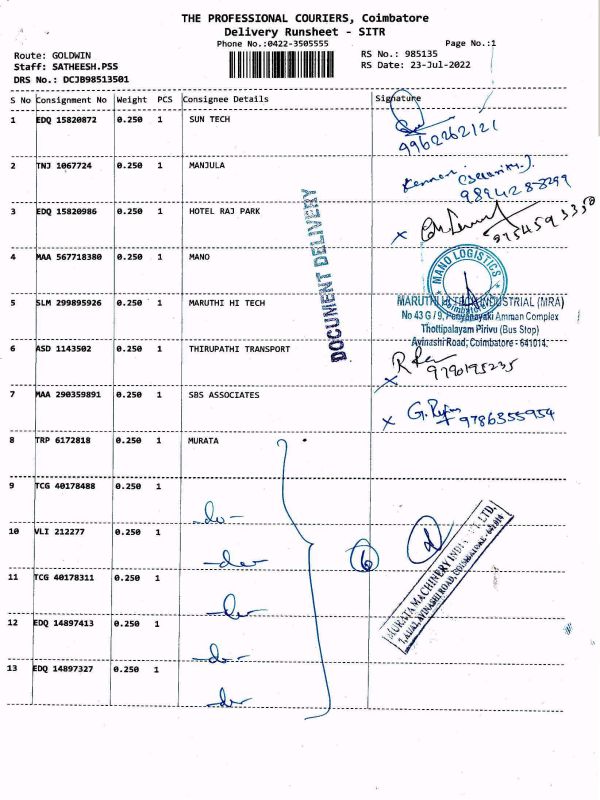 THE PROFESSIONAL COURIERS, Coimbatore
Delivery Runsheet - SITR
Phone No.:0422-3505555 Page No.:1
Route: GOLDWIN RS No.: 985135
Staff: SATHEESH.PSS RS Date: 23-Jul-2022
DRS No.: DCJB98513501
S No Consignment No Weight PCS Consignee Details Signature
1 EDQ 15820872 0.250 1 SUN TECH
9962262121
2 TNJ 1067724 0.250 1 MANJULA
(Security)
3 EDQ 15820986 0.250 1 HOTEL RAJ PARK
DOCUMENT DELIVERY
4 MAA 567718380 0.250 1 MANO
MANO LOGISTICS
Coimbatore
5 SLM 299895926 0.250 1 MARUTHI HI TECH
MARUTHI HI TECH INDUSTRIAL (MRA)
No 43 G / 9, Periyanayaki Amman Complex
Thottipalayam Pirivu (Bus Stop)
Avinashi Road, Coimbatore - 641014.
6 ASD 1143502 0.250 1 THIRUPATHI TRANSPORT
9790195235
7 MAA 290359891 0.250 1 SBS ASSOCIATES
9786355954
8 TRP 6172818 0.250 1 MURATA
9 TCG 40178488 0.250 1
-do-
10 VLI 212277 0.250 1
-do-
6
11 TCG 40178311 0.250 1
-do-
12 EDQ 14897413 0.250 1
-do-
13 EDQ 14897327 0.250 1
-do-
MURATA MACHINERY INDIA PVT. LTD.
AVINASHI ROAD, COIMBATORE - 641014